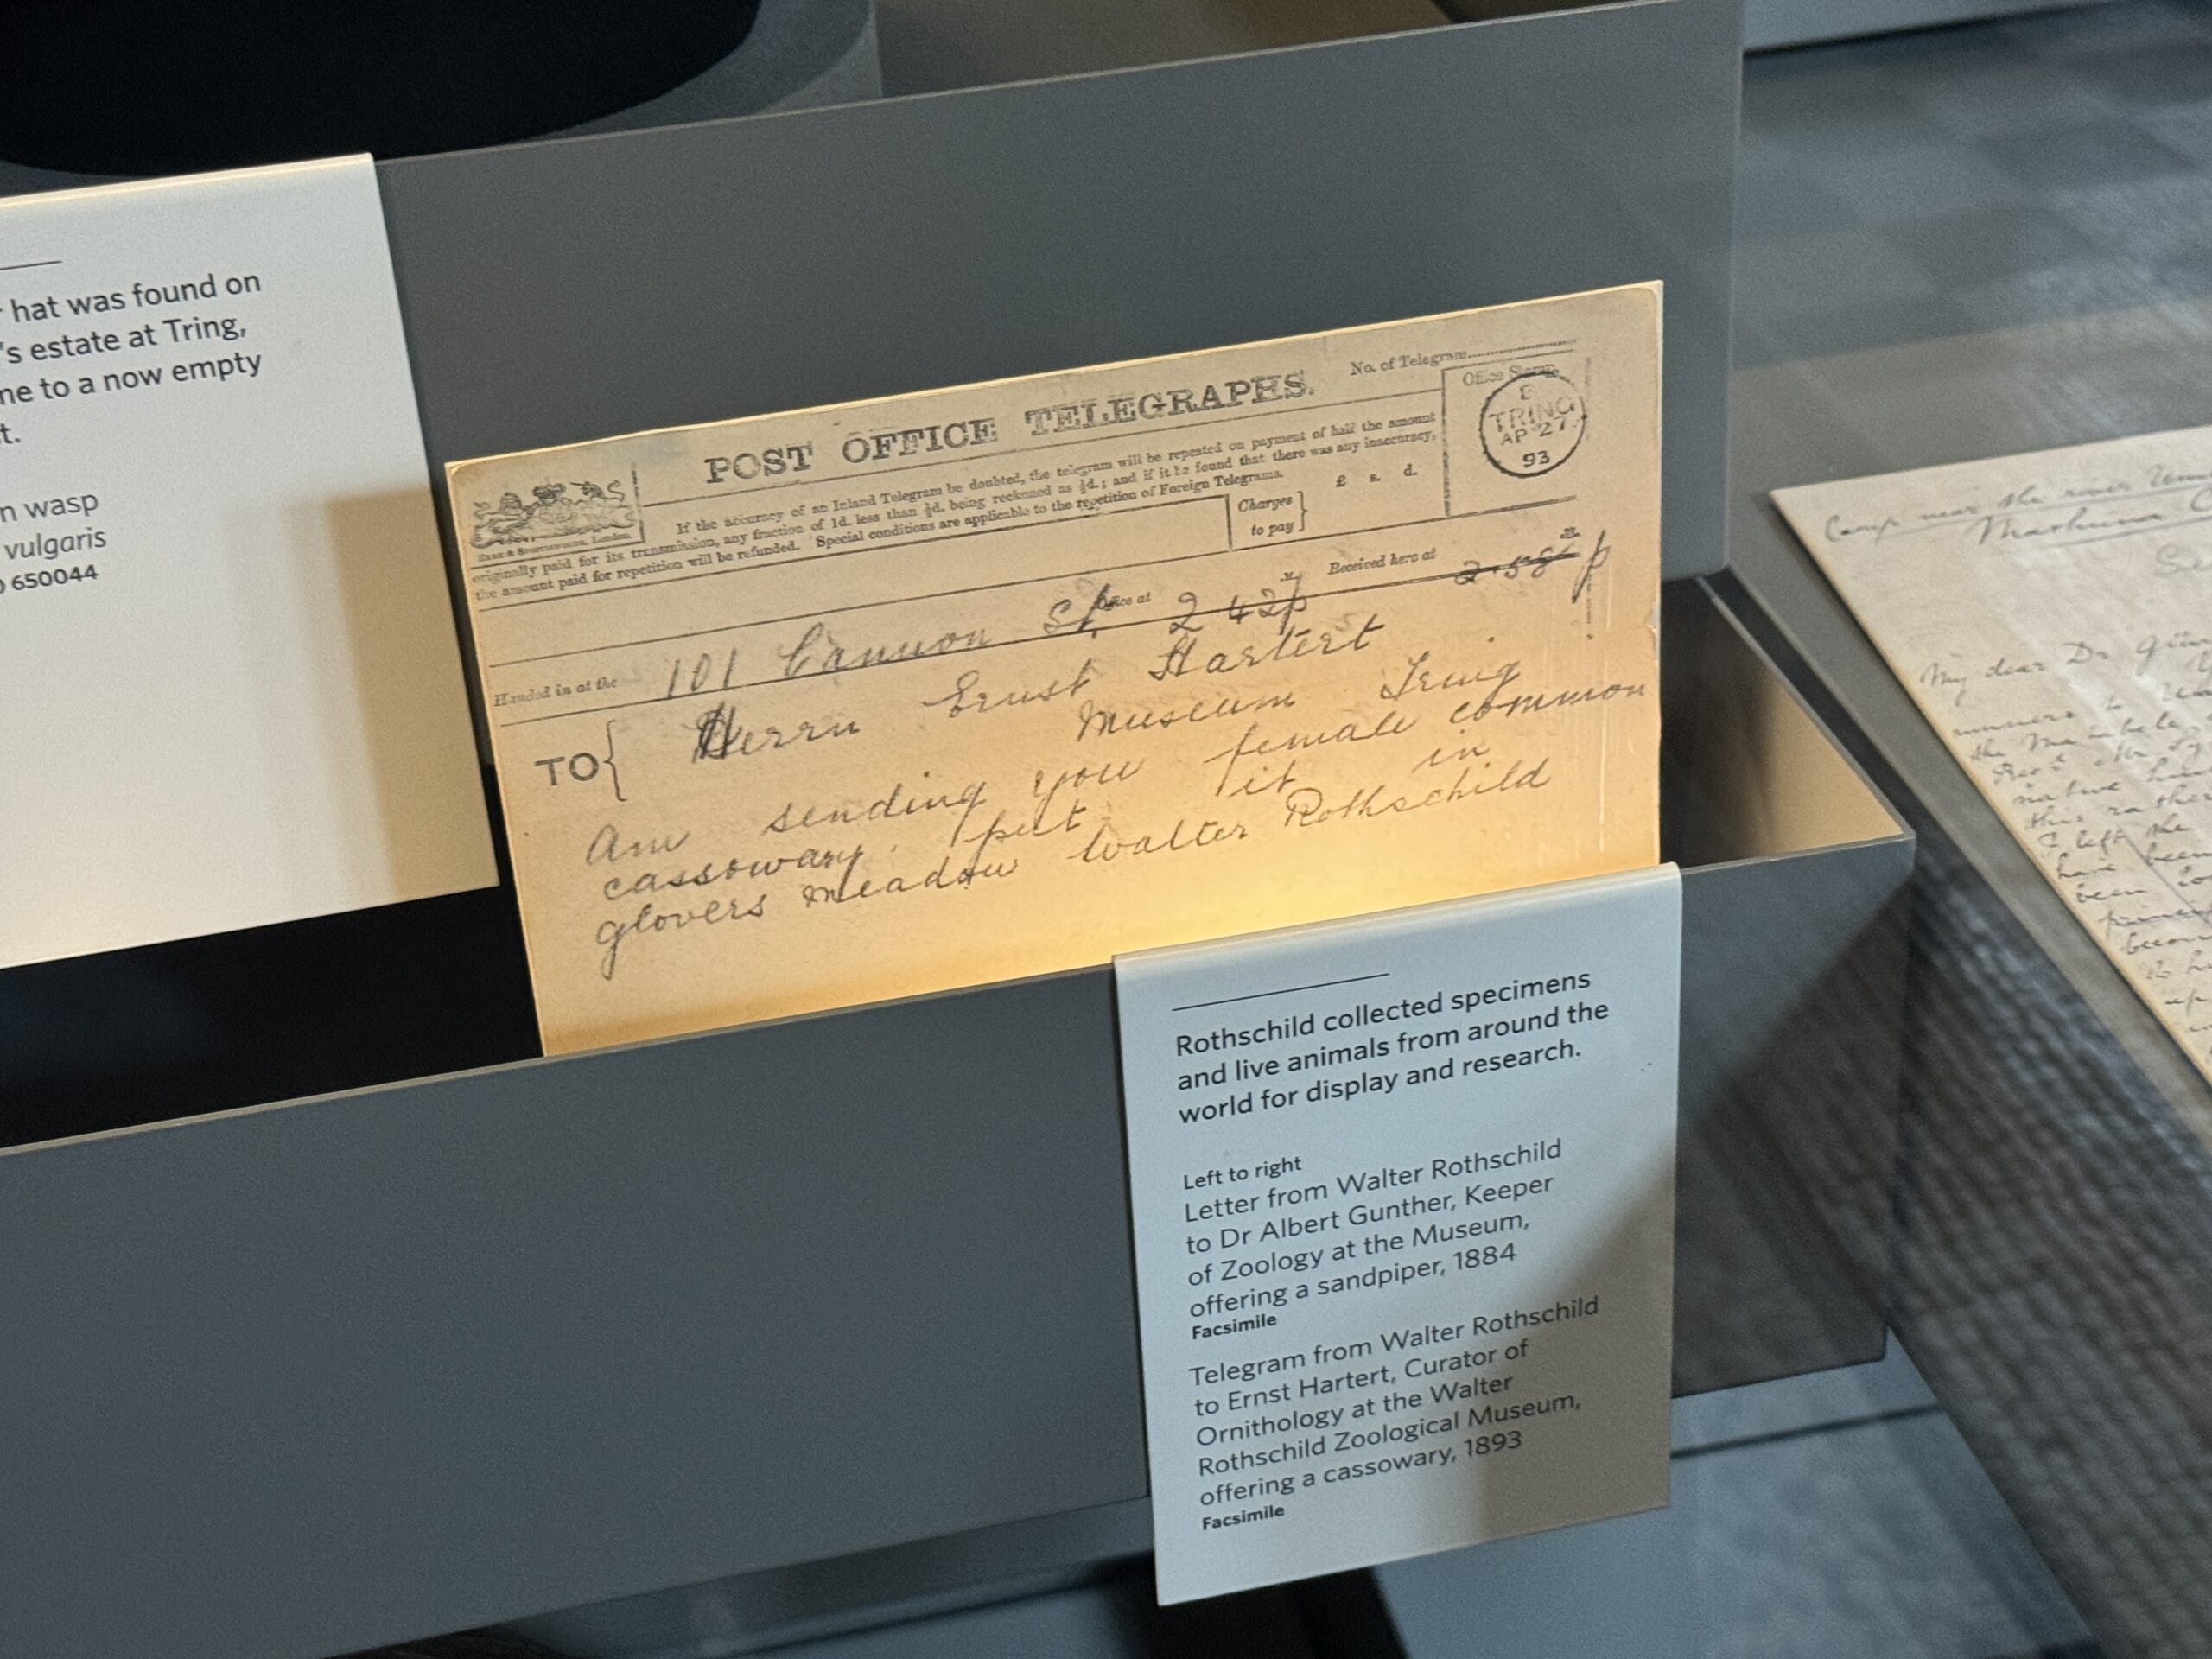 hat was found on
's estate at Tring,
to a now empty
wasp
vulgaris
650044
POST OFFICE TELEGRAPHS.
No. of Telegram
Office Stamp.
TRING
AP 27
93
If the accuracy of an Inland Telegram be doubted, the telegram will be repeated on payment of half the amount
originally paid for its transmission, any fraction of 1d. less than ½d. being reckoned as ½d.; and if it be found that there was any inaccuracy,
the amount paid for repetition will be refunded. Special conditions are applicable to the repetition of Foreign Telegrams.
Charges
to pay
£ s. d.
Handed in at the 101 Cannon St. Office at 2 42p Received here at 2.58 p
TO Herrn Ernst Hartert
Museum Tring
Am sending you female common
cassowary. put it in
glovers meadow Walter Rothschild
Camp near the river
My dear Dr
the
native
I left the
have been
been
Rothschild collected specimens
and live animals from around the
world for display and research.
Left to right
Letter from Walter Rothschild
to Dr Albert Gunther, Keeper
of Zoology at the Museum,
offering a sandpiper, 1884
Facsimile
Telegram from Walter Rothschild
to Ernst Hartert, Curator of
Ornithology at the Walter
Rothschild Zoological Museum,
offering a cassowary, 1893
Facsimile